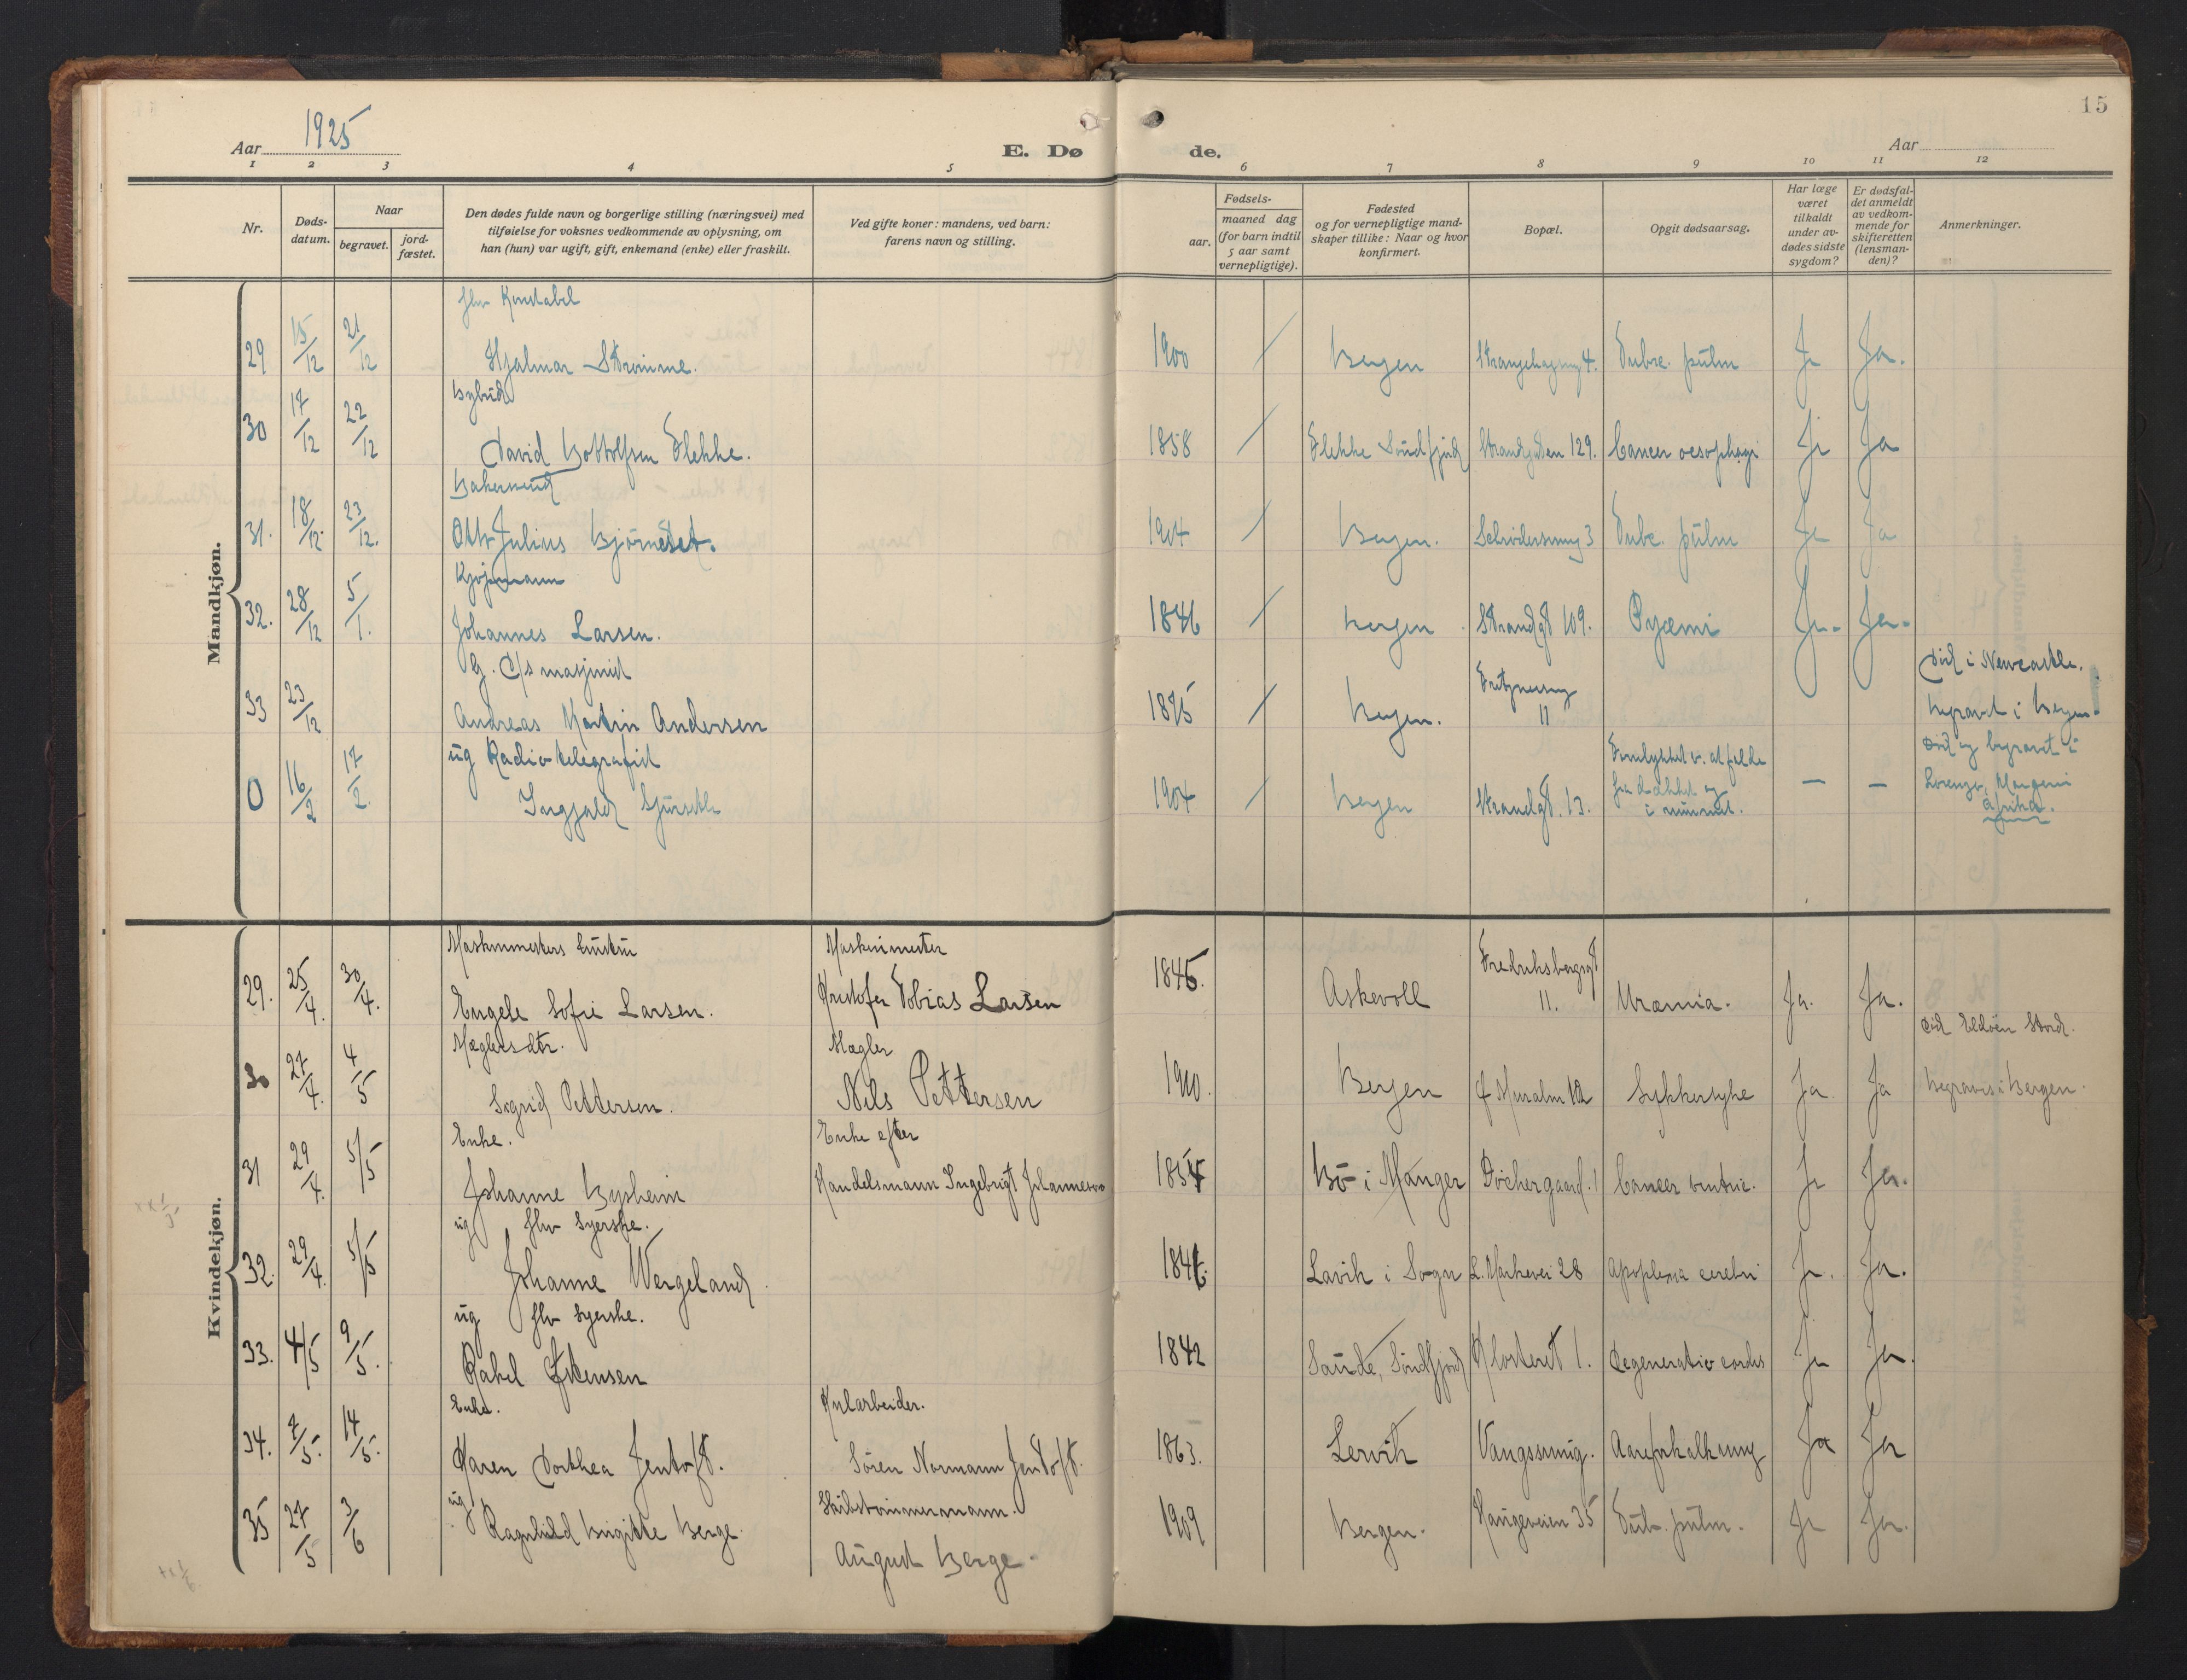 15
Aar 1925
E. Dø
de.
Aar
1 2 3 4 5 6 7 8 9 10 11 12
Nr.
Døds-
datum.
Naar
begravet.
jord-
fæstet.
Den dødes fulde navn og borgerlige stilling (næringsvei) med
tilføielse for voksnes vedkommende av oplysning, om
han (hun) var ugift, gift, enkemand (enke) eller fraskilt.
Ved gifte koner: mandens, ved barn:
farens navn og stilling.
Fødsels-
aar.
maaned dag
(for barn indtil
5 aar samt
vernepligtige).
Fødested
og for vernepligtige mand-
skaper tillike: Naar og hvor
konfirmert.
Bopæl.
Opgit dødsaarsag.
Har læge
været
tilkaldt
under av-
dødes sidste
sygdom?
Er dødsfal-
det anmeldt
av vedkom-
mende for
skifteretten
(lensman-
den)?
Anmerkninger.
Mandkjøn.
fhv Konstabel
29 15/12 21/12 Hjalmar Strømme. 1900 Bergen 4. Tubrc. pulm Ja Ja.
Bybud
30 17/12 22/12 David Bottolfsen Flekke. 1858 Flekke Søndfjord Strandgaten 129. Cancer oesophagi Ja Ja
Bakersvend
31. 18/12. 23/12. Otto Julius Bjørneset. 1904 Bergen. Schrødersmug 3 Tubc. pulm Ja Ja
Kjøpmann
32. 28/12 5/1. Johannes Larsen. 1846 Bergen Strandgt 109. Pyæmi Ja. Ja.
G. D/s maskinist
Fritznersmug
Død i Newcastle.
33 23/12 Andreas Martin Andersen 1875 Bergen. 11 begravet i Bergen.
ug Radiotelegrafist
Forulykket v. at falde
Død og begravet i
0 16/2 17/2 Ingjald 1904 Bergen Strandgt. 13. fra dækket og — — Lorenzo, Marques
i rummet.
Afrika.
Kvindekjøn.
Maskinmesters hustru
Maskinmester
Fredriksbergsgt
29. 25/4. 30/4. Engele Sofie Larsen. Kristofer Tobias Larsen 1845. Askevoll 11. Uræmia. Ja. Ja.
Mæglersdtr.
Mægler
død Eldøen Stord.
30 27/4. 4/5 Sigrid Pettersen. Nils Pettersen 1910. Bergen Sykkersyke Ja Ja begraves i Bergen.
Enke.
Enke efter
31 29/4. 5/5 Johanne Bysheim Handelsmann Ingebrigt Johannesen 1854 Bø i Manger Dockergaard. 1 Cancer ventric. Ja Ja.
ug fhv syerske.
32. 29/4. 5/5 Johanne Wergeland Lavik i Sogn L. Markevei 28 Apoplexia cerebri Ja. Ja.
ug fhv syerske.
33. 4/5 9/5. Rakel 1842 Sande, Søndfjord Klosteret 1. Degeneratio cordis Ja Ja.
Enke.
Kularbeider.
34. 7/5. 14/5. Karen Dorthea Jentoft. Søren Normann Jentoft. 1863. Lervik Vangssmug. Aareforkalkning Ja Ja
ug
Skibstømmermann.
35 27/5 3/6 Ragnhild Birgitte Berge. August Berge. 1909 Bergen. Haugeveien 35 Tub. pulm. Ja Ja.